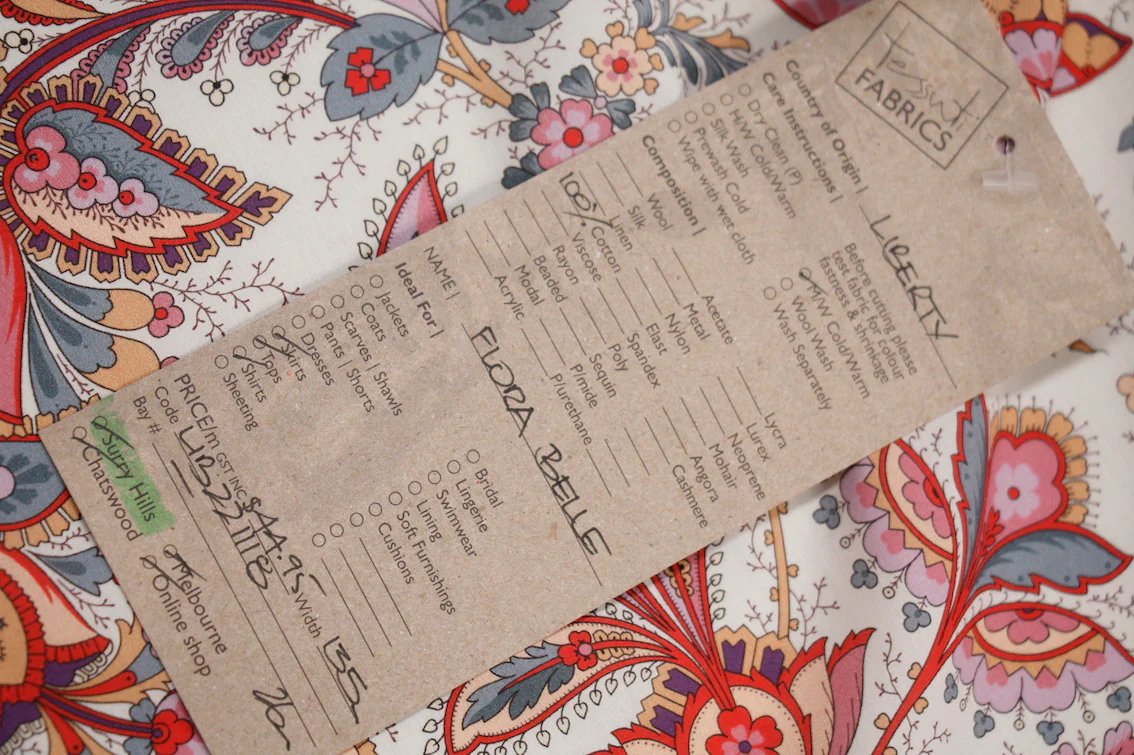 Tessuti
FABRICS
Country of Origin | LIBERTY
Care Instructions |
Dry Clean (P)
H/W Cold/Warm
Silk Wash
Prewash Cold
Wipe with wet cloth
Before cutting please
test fabric for colour
fastness & shrinkage
M/W Cold/Warm
Wool Wash
Wash Separately
Composition |
Wool
Silk
Linen
100% Cotton
Viscose
Rayon
Beaded
Modal
Acrylic
Acetate
Metal
Nylon
Elast
Spandex
Poly
Sequin
P/mide
P/urethane
Lycra
Lurex
Neoprene
Mohair
Angora
Cashmere
NAME | FLORA BELLE
Ideal For |
Jackets
Coats
Scarves | Shawls
Pants | Shorts
Dresses
Skirts
Tops
Shirts
Sheeting
Bridal
Lingerie
Swimwear
Lining
Soft Furnishings
Cushions
PRICE/m GST INC $44.95 Width 135
Code LIB221118
Bay # 26
Surry Hills
Chatswood
Melbourne
Online shop